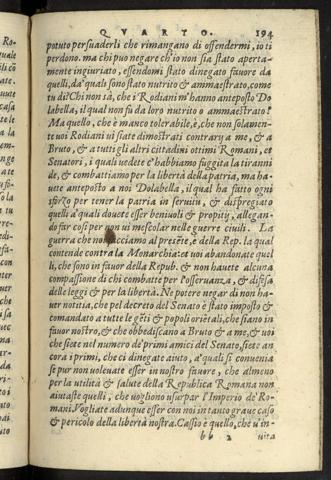 QVARTO. 194
potuto persuaderli che rimangano di offendermi, io ti
perdono. ma chi puo negare ch'io non sia stato aperta-
mente ingiuriato, essendomi stato dinegato fauore da
quelli, da' quali sono stato nutrito & ammaestrato, come
tu di? Chi non sà, che i Rodiani m'hanno anteposto Do
labella, il qual non fu da loro nutrito o ammaestrato?
Ma quello, che è manco tolerabile, è, che non solamen-
te uoi Rodiani ui siate dimostrati contrary a me, & a
Bruto, & a tutti gli altri cittadini ottimi Romani, et
Senatori, i quali uedete c'habbiamo fuggita la tiranni
de, & combattiamo per la libertà della patria, ma ha-
uete anteposto a noi Dolabella, il qual ha fatto ogni
sforzo per tener la patria in seruitù, & dispregiato
quelli a' quali douete esser beniuoli & propitij, allegan-
do far cosi per non ui mescolar nelle guerre ciuili. La
guerra che noi facciamo al presẽte, è della Rep. la qual
contende contra la Monarchia: et uoi abandonate quel
li, che sono in fauor della Repub. & non hauete alcuna
compassione di chi combatte per l'osseruanza, & difesa
delle leggi & per la libertà. Ne potete negar di non ha-
uer notitia, che pel decreto del Senato è stato imposto &
comandato a tutte le gẽti & popoli oriẽtali, che siano in
fauor nostro, & che obbediscano a Bruto & a me, & uoi
che siete nel numero de' primi amici del Senato, siete an
cora i primi, che ci dinegate aiuto, a' quali si conuenia
se pur non uoleuate esser in nostro fauore, che almeno
per la utilità & salute della Republica Romana non
aiutaste quelli, che uogliono usurpar l'Imperio de' Ro-
mani. Vogliate adunque esser con noi in tanto graue caso
& pericolo della libertà nostra. Cassio è quello, che u'in-
bb 2 uita